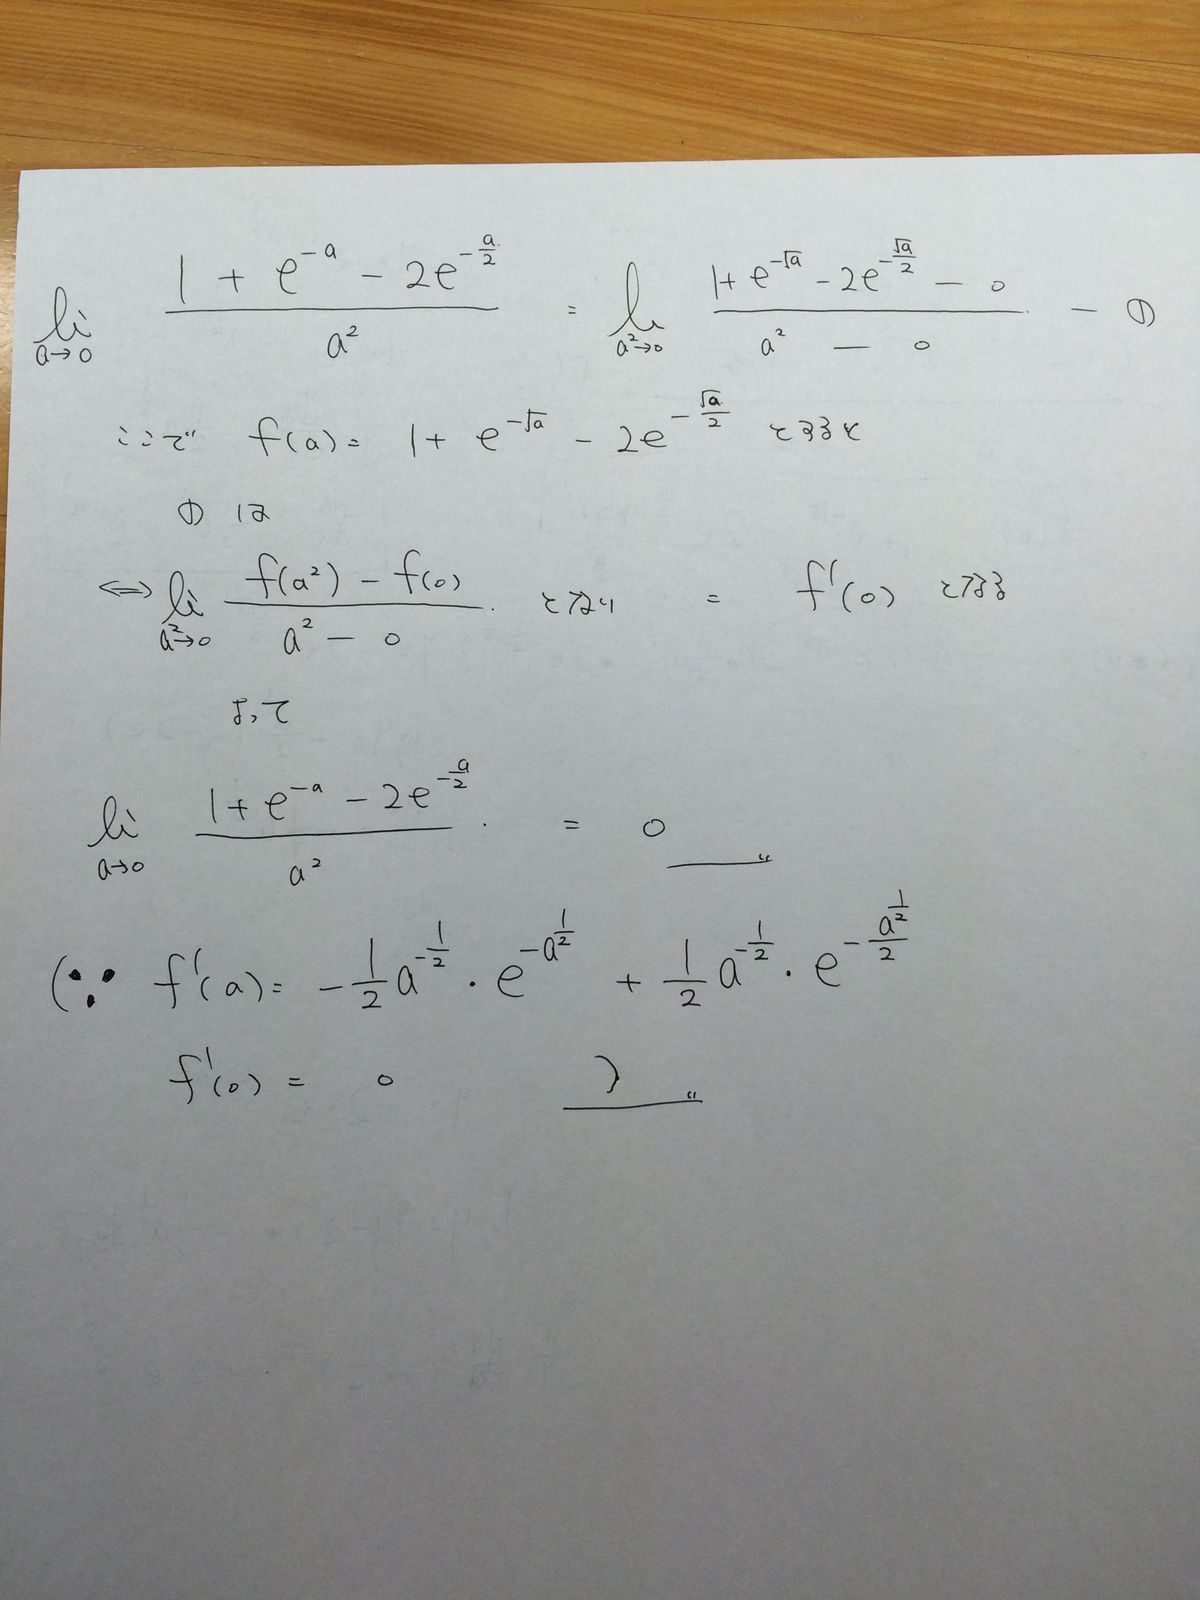 lim_{a→0} (1 + e^{-a} - 2e^{-a/2}) / a² = lim_{a²→0} (1 + e^{-√a} - 2e^{-√a/2} - 0) / (a² - 0) - ①
ここで f(a) = 1 + e^{-√a} - 2e^{-√a/2} とすると
①は
⇔ lim_{a²→0} (f(a²) - f(0)) / (a² - 0) となり = f'(0) となる
よって
lim_{a→0} (1 + e^{-a} - 2e^{-a/2}) / a² = 0
(∵ f'(a) = -1/2 a^{-1/2} · e^{-a^{1/2}} + 1/2 a^{-1/2} · e^{-a^{1/2}/2}
f'(0) = 0 )